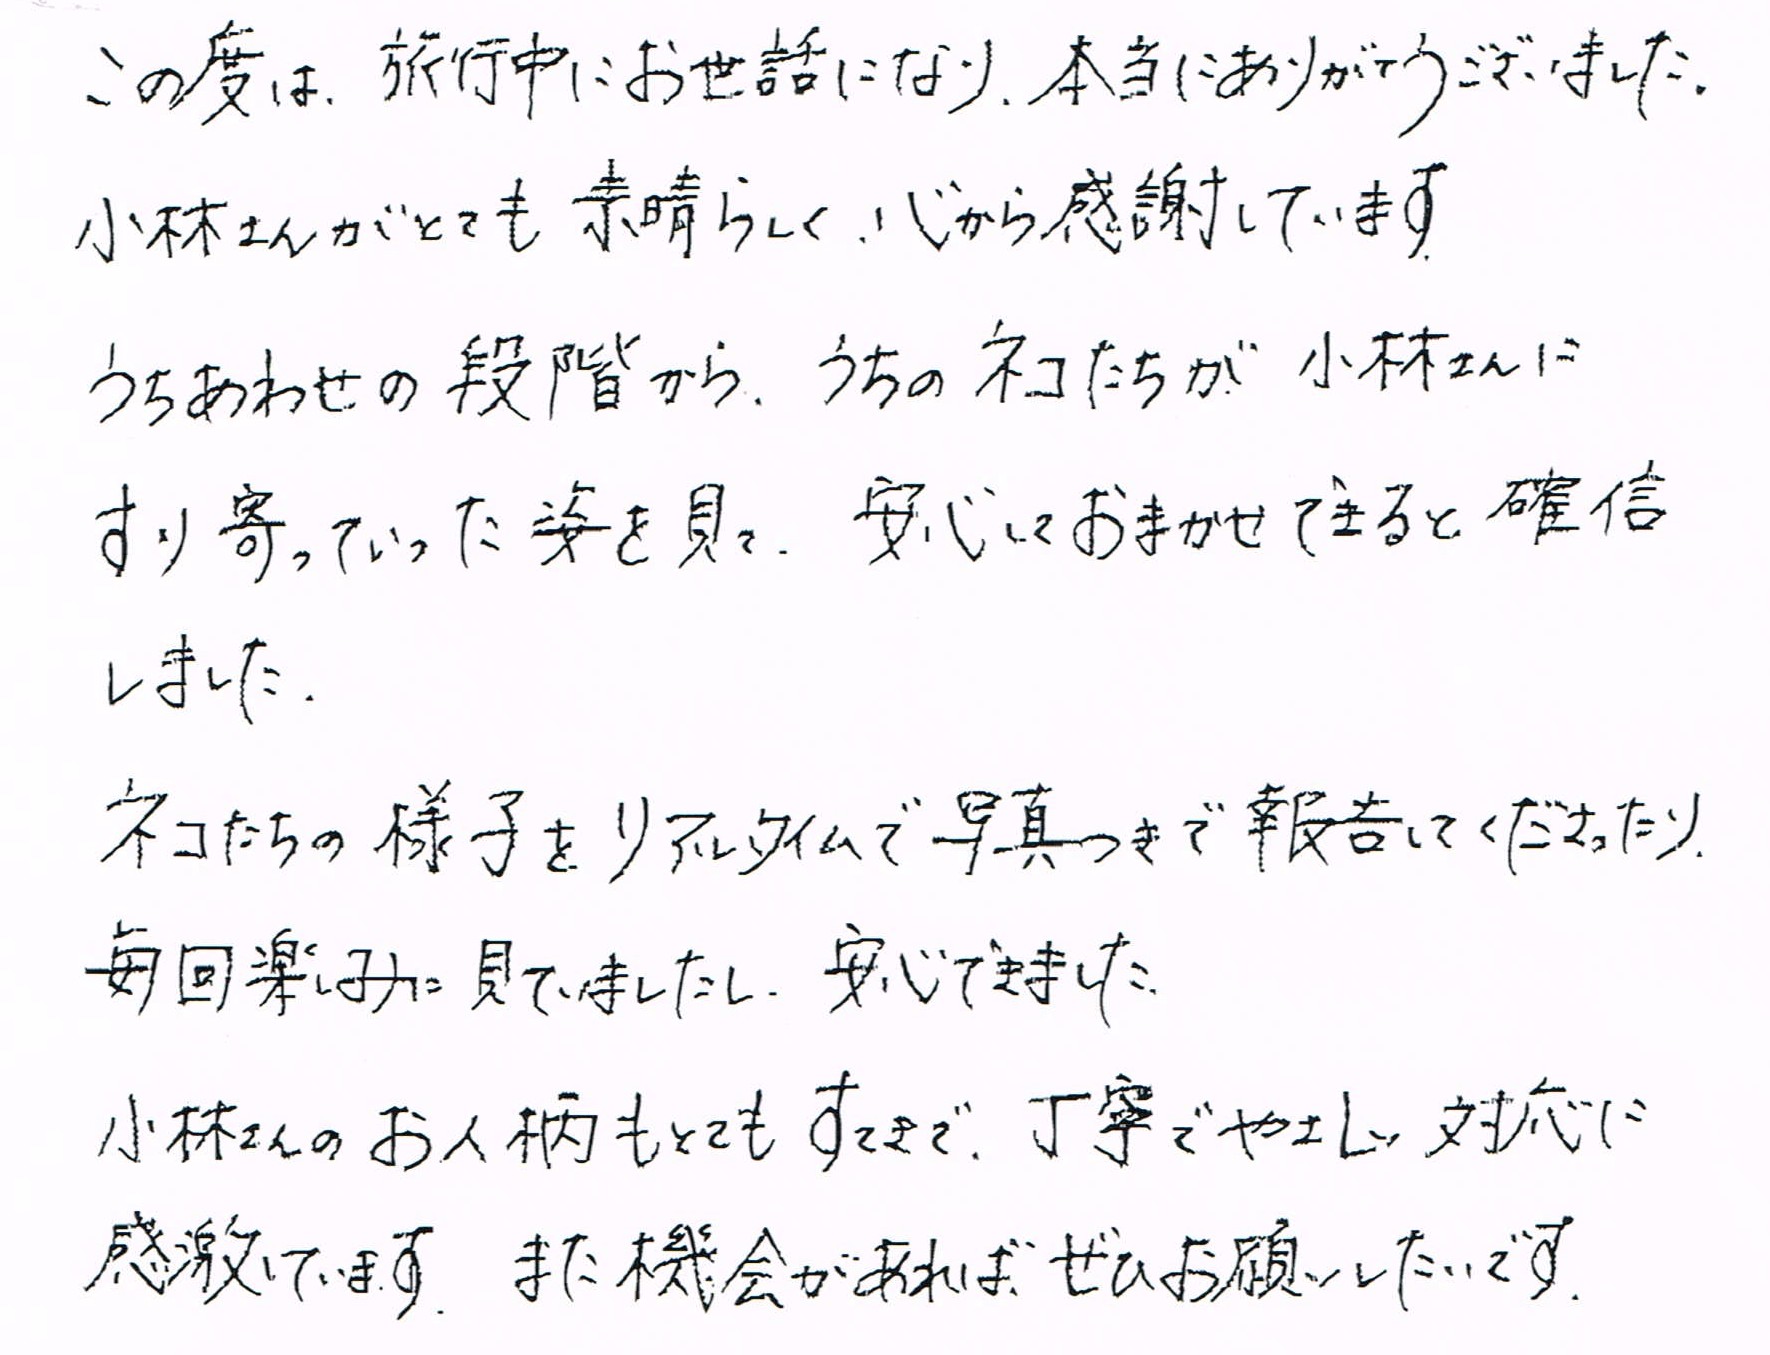 この度は、旅行中にお世話になり、本当にありがとうございました。
小林さんがとても素晴らしく、心から感謝しています。
うちあわせの段階から、うちのネコたちが小林さんに
すり寄っていった姿を見て、安心しておまかせできると確信
しました。
ネコたちの様子をリアルタイムで写真つきで報告してくださったり、
毎回楽しみに見ていましたし、安心できました。
小林さんのお人柄もとてもすてきで、丁寧でやさしい対応に
感激しています。また機会があれば、ぜひお願いしたいです。